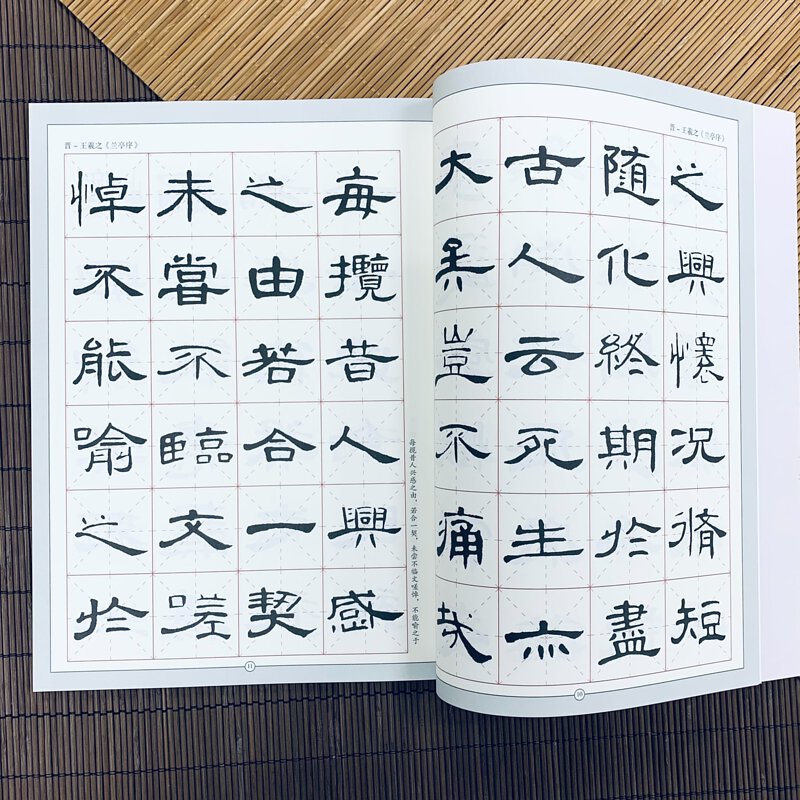 晋-王羲之《兰亭序》
之興懷況脩短
隨化終期於盡
古人云死生亦
大矣豈不痛哉
10
晋-王羲之《兰亭序》
每攬昔人興感
之由若合一契
未嘗不臨文嗟
悼不能喻之於
每揽昔人兴感之由，若合一契，未尝不临文嗟悼，不能喻之于
11